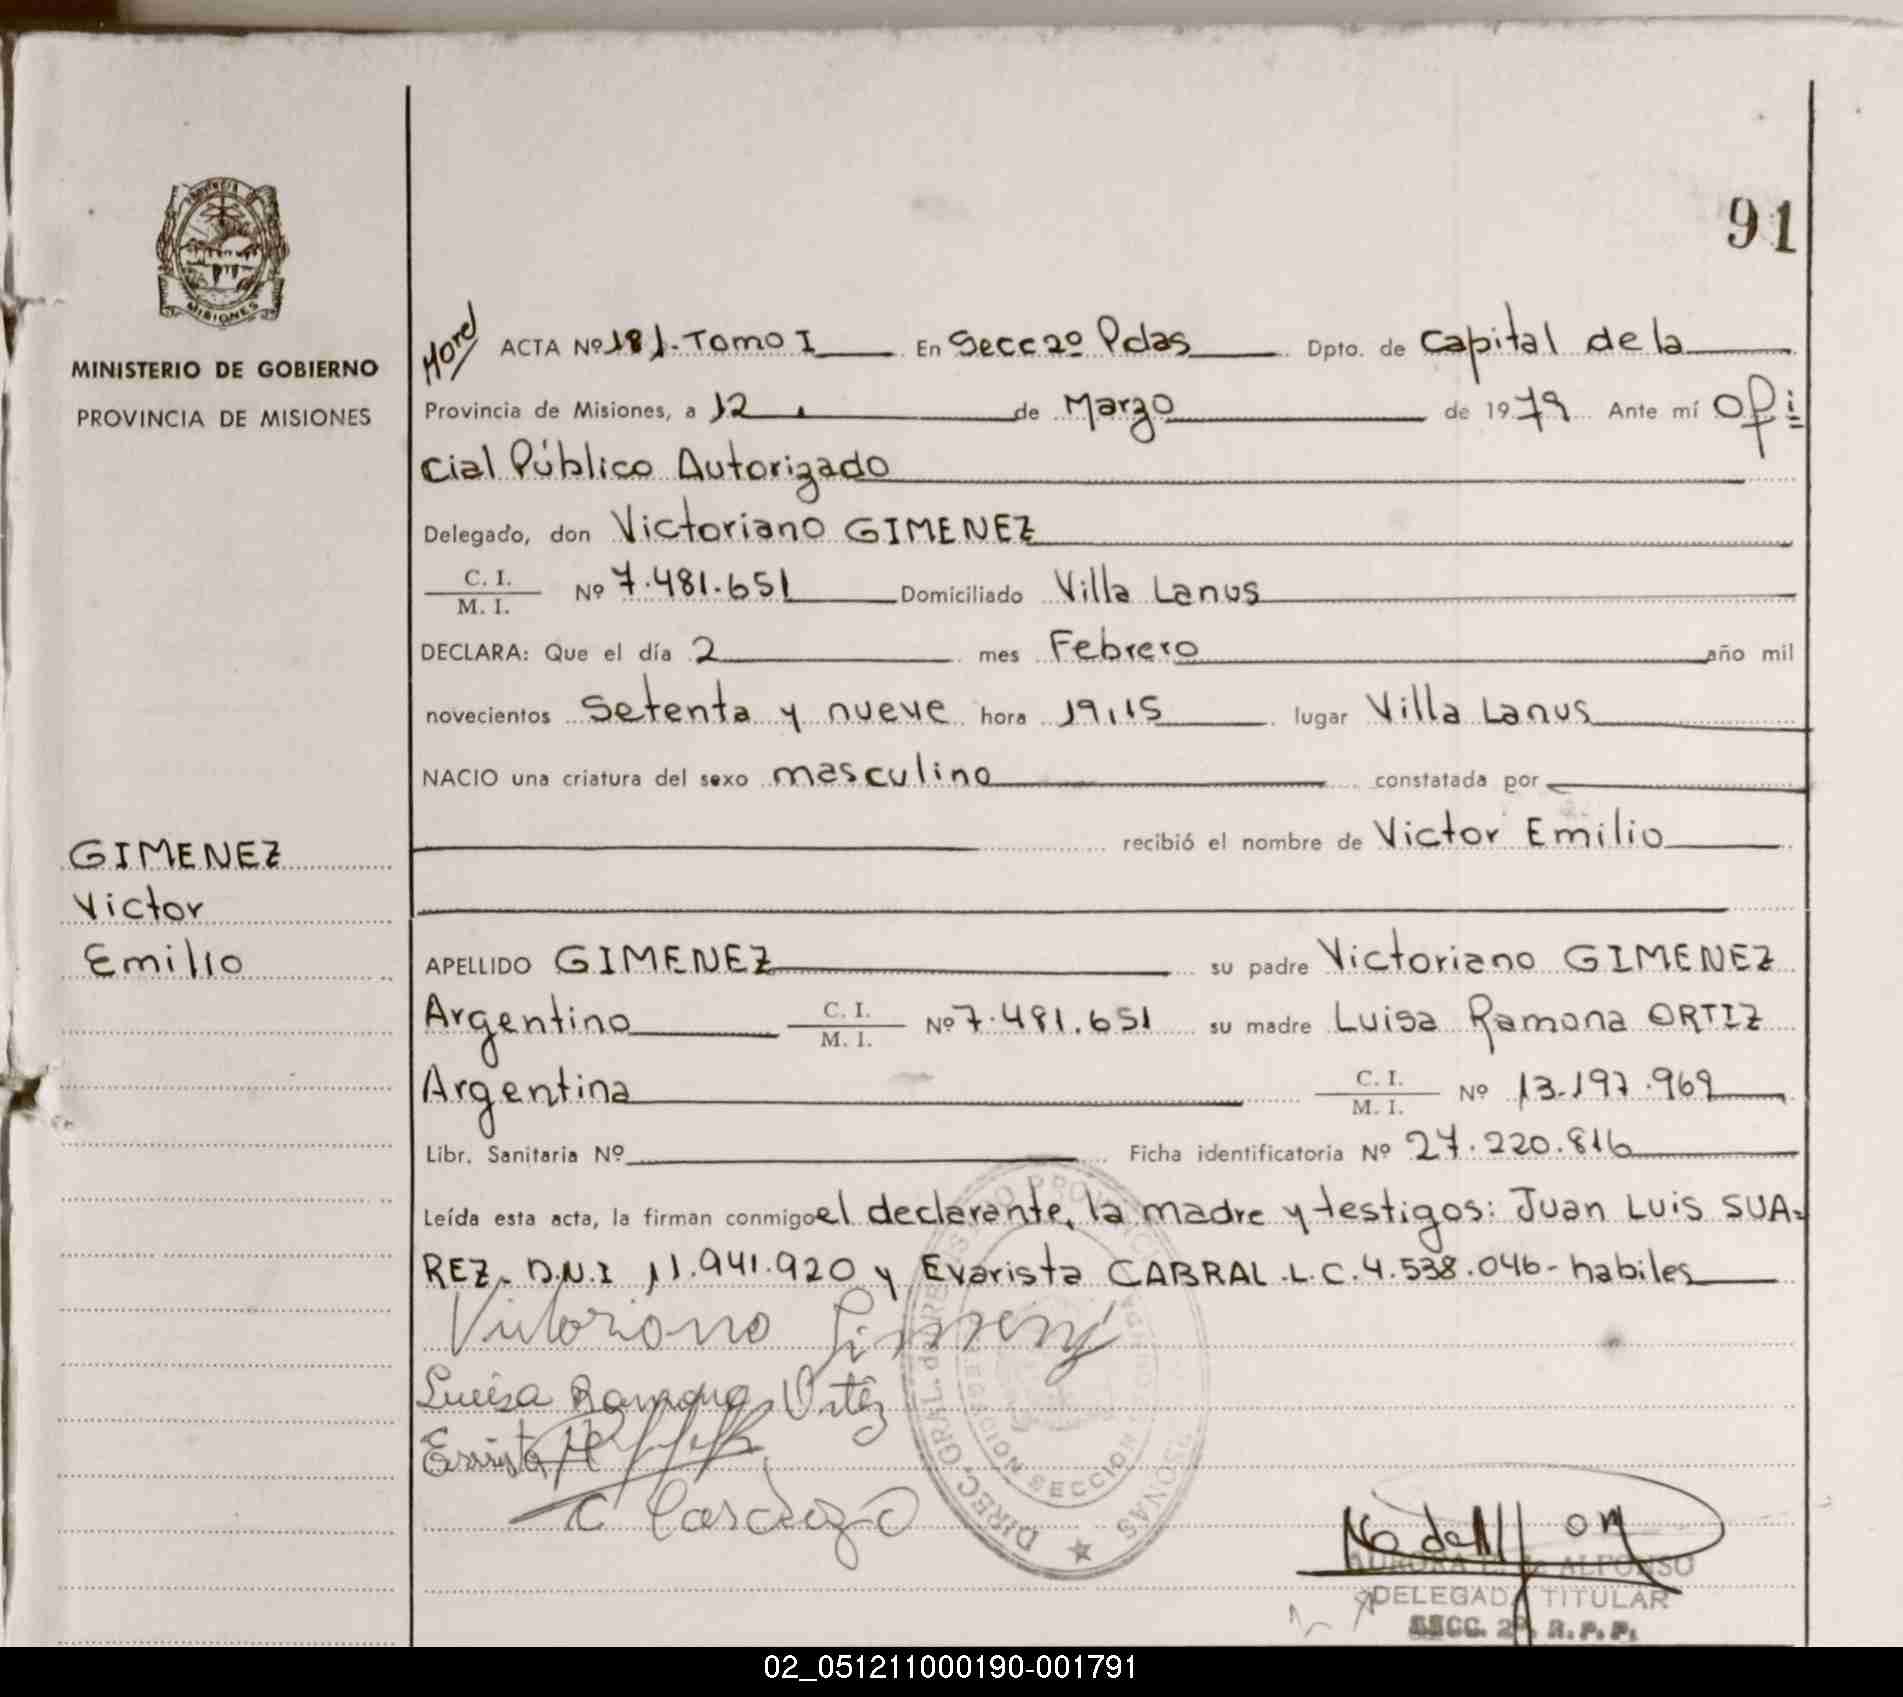 PROVINCIA DE
MISIONES
MINISTERIO DE GOBIERNO
PROVINCIA DE MISIONES
91
ACTA Nº 181. Tomo I En Secc 2º Pdas Dpto. de Capital de la
Provincia de Misiones, a 12 de Marzo de 1979 Ante mí Ofi
cial Público Autorizado
Delegado, don Victoriano GIMENEZ
C. I.
M. I. Nº 7.481.651 Domiciliado Villa Lanus
DECLARA: Que el día 2 mes Febrero año mil
novecientos Setenta y nueve hora 19,15 lugar Villa Lanus
NACIO una criatura del sexo masculino constatada por
recibió el nombre de Victor Emilio
GIMENEZ
Victor
Emilio
APELLIDO GIMENEZ su padre Victoriano GIMENEZ
Argentino C. I. M. I. Nº 7.481.651 su madre Luisa Ramona ORTIZ
Argentina C. I. M. I. Nº 13.197.969
Libr. Sanitaria Nº Ficha identificatoria Nº 27.220.816
Leída esta acta, la firman conmigo el declarante, la madre y testigos: Juan Luis SUA-
REZ. D.N.I 11.941.920 y Evarista CABRAL.L.C.4.538.046- habiles
Victoriano Gimenez
Luisa Ramona Ortiz
SECCION
AURORA ALFONSO
DELEGADA TITULAR
SECC. 2ª. R.P.P.
02_051211000190-001791